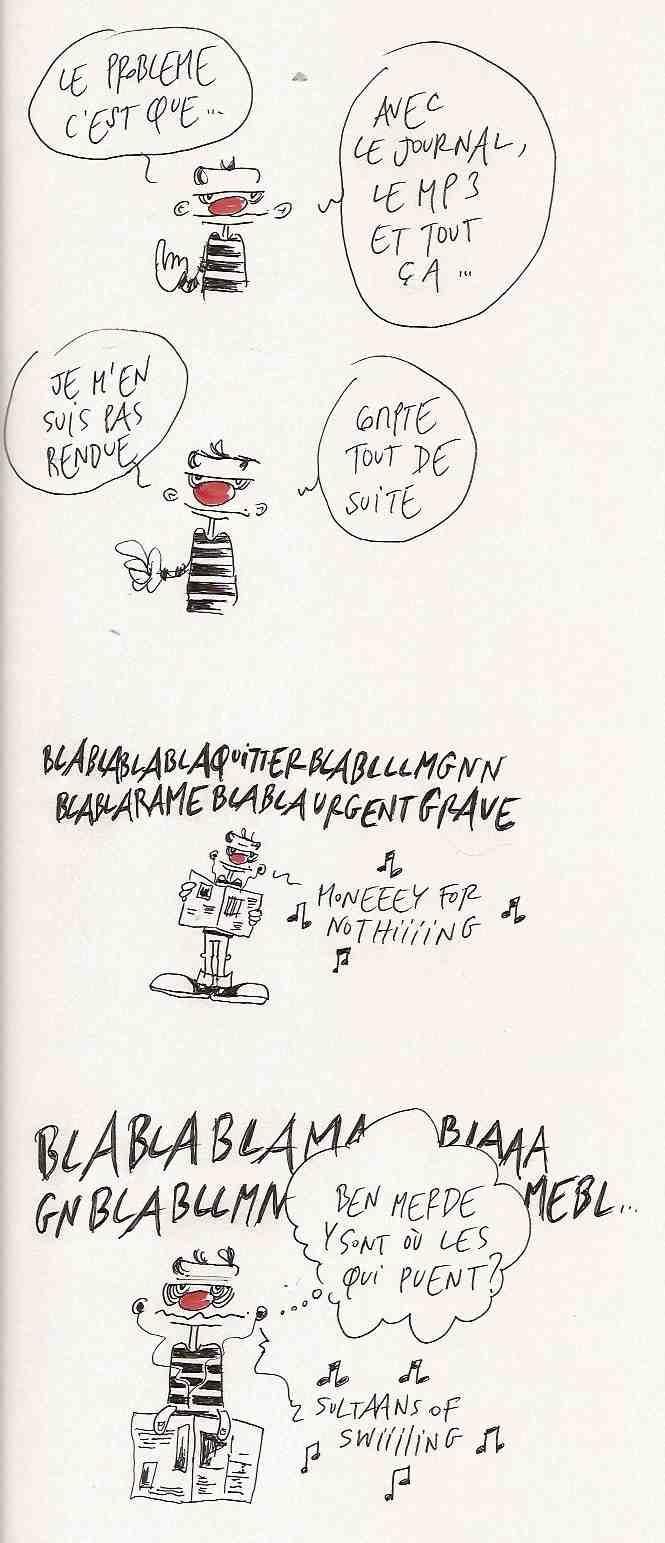 LE PROBLEME
C'EST QUE...
AVEC
LE JOURNAL,
LE MP3
ET TOUT
ÇA...
JE M'EN
SUIS PAS
RENDUE
COMPTE
TOUT DE
SUITE
BLABLABLABLAQUITTERBLABLLLMGNN
BLABLARAMEBLABLAURGENTGRAVE
MONEEEY FOR
NOTHiiiiNG
BLABLABLAMA BLAAA
GNBLABLLMN MEBL...
BEN MERDE
Y SONT OÙ LES
QUI PUENT?
SULTAANS OF
SWIIIIING